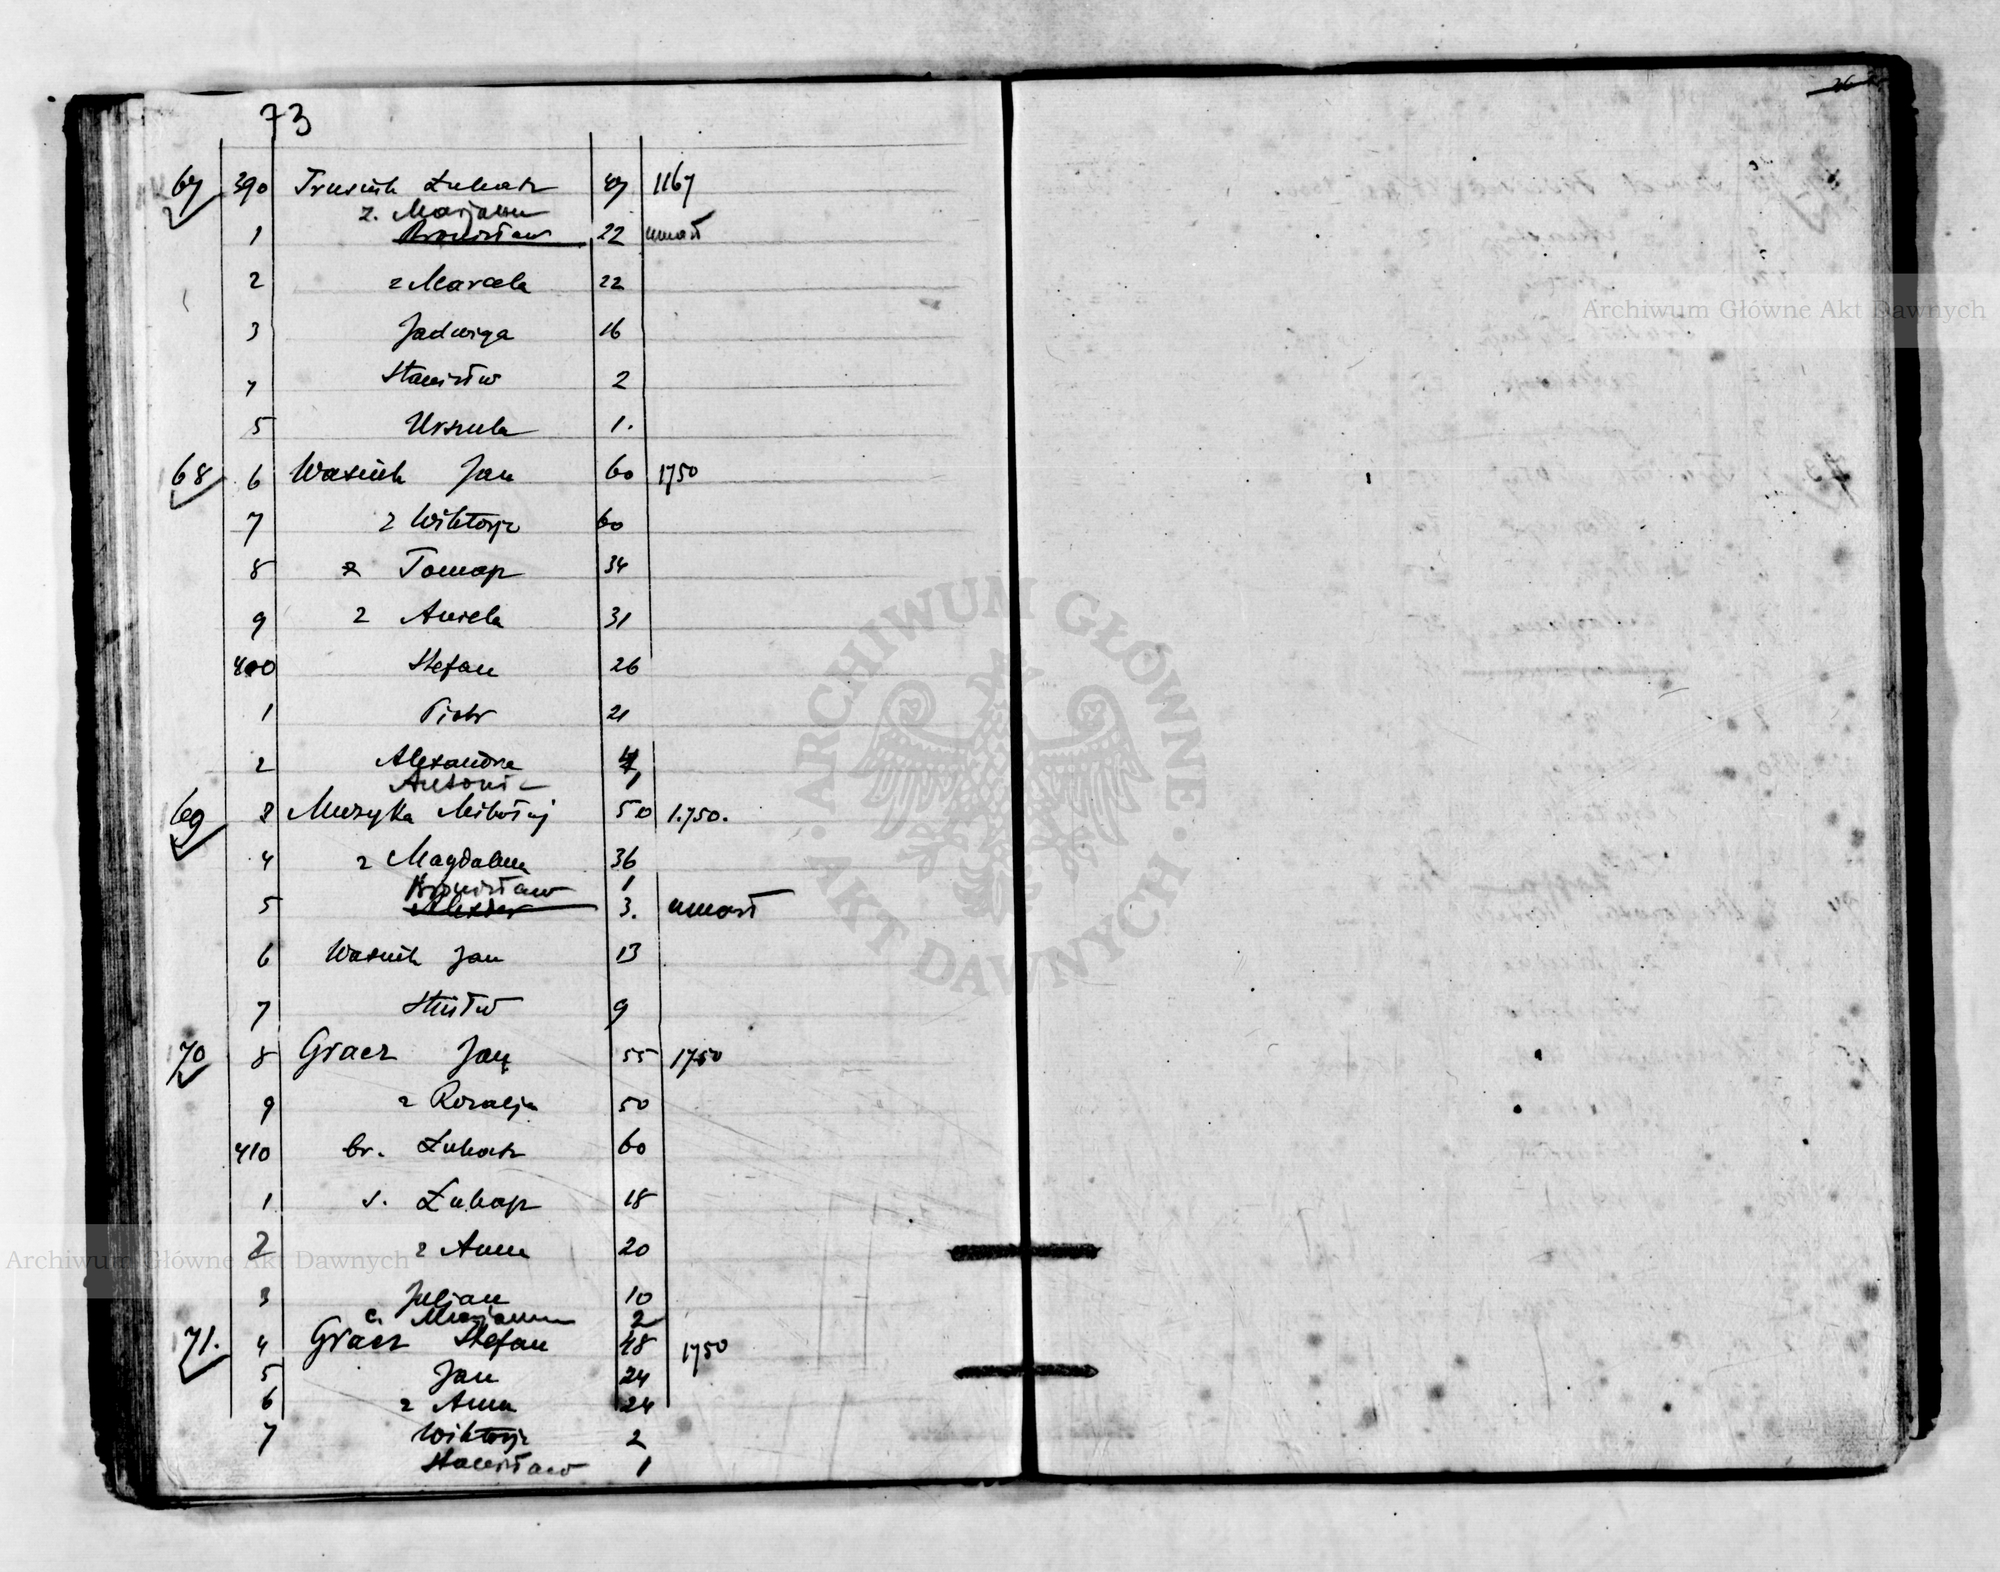 73
67 390 Trusiuk Łukasz 47 1167
z. Marjanna
1 Bronisław 22 umarł
2 z Marcela 22
3 Jadwiga 16
Stanisłw 2
5 Urszula 1.
68 6 Wasiuk Jan 60 1750
7 z Wiktorja 60
8 Tomasz 34
9 z Aniela 31
400 Stefan 26
1 Piotr 21
2 Alexandra 4
Antoni 1
69 3 Muzyka Mikołaj 50 1.750.
4 z Magdalena 36
Bronisław 1
5 3. umarł
6 Wasiuk Jan 13
7 Stnisłw 9
70 8 Gracz Jan 55 1750
9 z Rozalja 50
410 br. Łukasz 60
1 s. Łukasz 18
2 z Anna 20
3 Juljan 10
c. Marjanna 2
71. 4 Gracz Stefan 48 1750
5 Jan 24
6 z Anna 24
7 Wiktorja 2
Stanisław 1
Archiwum Główne Akt Dawnych
ARCHIWUM GŁÓWNE · AKT DAWNYCH ·
Archiwum Główne Akt Dawnych